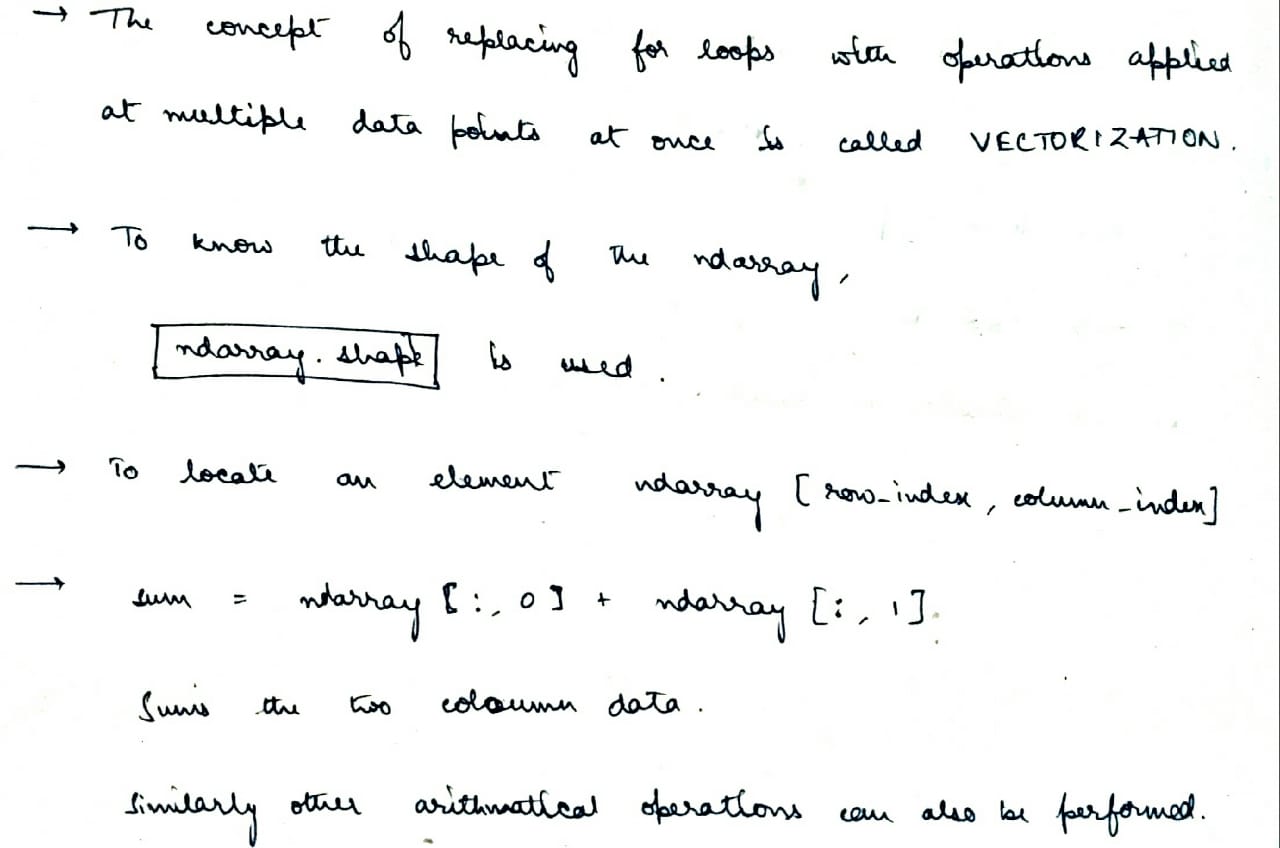 → The concept of replacing for loops with operations applied
at multiple data points at once is called VECTORIZATION.
→ To know the shape of the ndarray,
ndarray.shape is used.
→ To locate an element ndarray [row_index, column_index]
→ sum = ndarray [:, 0] + ndarray [:, 1].
Sums the two coloumn data.
Similarly other arithmatical operations can also be performed.